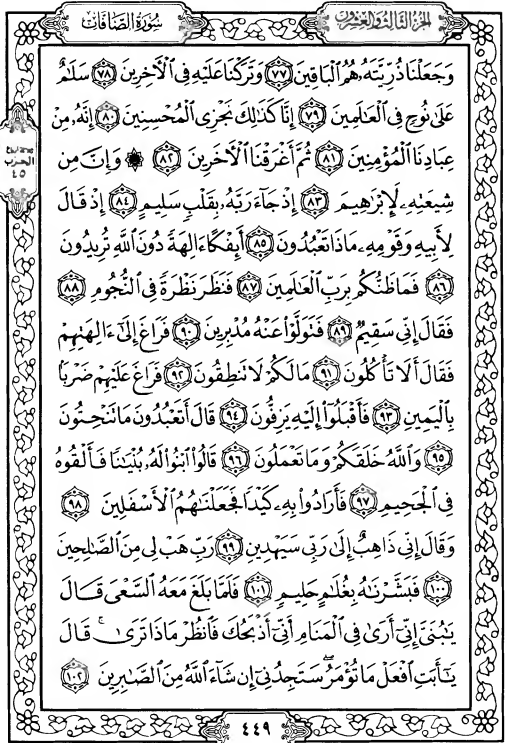 سُورَةُ الصَّافَاتِ
الجُزْءُ الثَّالِثُ وَالعِشْرُونَ
وَجَعَلْنَا ذُرِّيَّتَهُۥ هُمُ ٱلْبَاقِينَ ٧٧ وَتَرَكْنَا عَلَيْهِ فِى ٱلْءَاخِرِينَ ٧٨ سَلَٰمٌ
عَلَىٰ نُوحٍ فِى ٱلْعَٰلَمِينَ ٧٩ إِنَّا كَذَٰلِكَ نَجْزِى ٱلْمُحْسِنِينَ ٨٠ إِنَّهُۥ مِنْ
عِبَادِنَا ٱلْمُؤْمِنِينَ ٨١ ثُمَّ أَغْرَقْنَا ٱلْءَاخَرِينَ ٨٢ ۞ وَإِنَّ مِن
شِيعَتِهِۦ لَإِبْرَٰهِيمَ ٨٣ إِذْ جَآءَ رَبَّهُۥ بِقَلْبٍ سَلِيمٍ ٨٤ إِذْ قَالَ
لِأَبِيهِ وَقَوْمِهِۦ مَاذَا تَعْبُدُونَ ٨٥ أَئِفْكًا ءَالِهَةً دُونَ ٱللَّهِ تُرِيدُونَ
٨٦ فَمَا ظَنُّكُم بِرَبِّ ٱلْعَٰلَمِينَ ٨٧ فَنَظَرَ نَظْرَةً فِى ٱلنُّجُومِ ٨٨
فَقَالَ إِنِّى سَقِيمٌ ٨٩ فَتَوَلَّوْا۟ عَنْهُ مُدْبِرِينَ ٩٠ فَرَاغَ إِلَىٰٓ ءَالِهَتِهِمْ
فَقَالَ أَلَا تَأْكُلُونَ ٩١ مَا لَكُمْ لَا تَنطِقُونَ ٩٢ فَرَاغَ عَلَيْهِمْ ضَرْبًۢا
بِٱلْيَمِينِ ٩٣ فَأَقْبَلُوٓا۟ إِلَيْهِ يَزِفُّونَ ٩٤ قَالَ أَتَعْبُدُونَ مَا تَنْحِتُونَ
٩٥ وَٱللَّهُ خَلَقَكُمْ وَمَا تَعْمَلُونَ ٩٦ قَالُوا۟ ٱبْنُوا۟ لَهُۥ بُنْيَٰنًا فَأَلْقُوهُ
فِى ٱلْجَحِيمِ ٩٧ فَأَرَادُوا۟ بِهِۦ كَيْدًا فَجَعَلْنَٰهُمُ ٱلْأَسْفَلِينَ ٩٨
وَقَالَ إِنِّى ذَاهِبٌ إِلَىٰ رَبِّى سَيَهْدِينِ ٩٩ رَبِّ هَبْ لِى مِنَ ٱلصَّٰلِحِينَ
١٠٠ فَبَشَّرْنَٰهُ بِغُلَٰمٍ حَلِيمٍ ١٠١ فَلَمَّا بَلَغَ مَعَهُ ٱلسَّعْىَ قَالَ
يَٰبُنَىَّ إِنِّىٓ أَرَىٰ فِى ٱلْمَنَامِ أَنِّىٓ أَذْبَحُكَ فَٱنظُرْ مَاذَا تَرَىٰ ۚ قَالَ
يَٰٓأَبَتِ ٱفْعَلْ مَا تُؤْمَرُ ۖ سَتَجِدُنِىٓ إِن شَآءَ ٱللَّهُ مِنَ ٱلصَّٰبِرِينَ ١٠٢
الحزب
٤٥
٤٤٩